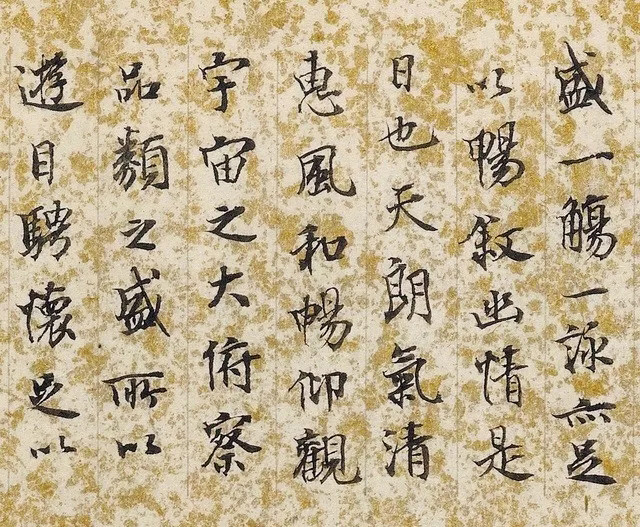 盛一觴一詠亦足
以暢敘幽情是
日也天朗氣清
惠風和暢仰觀
宇宙之大俯察
品類之盛所以
遊目騁懷足以